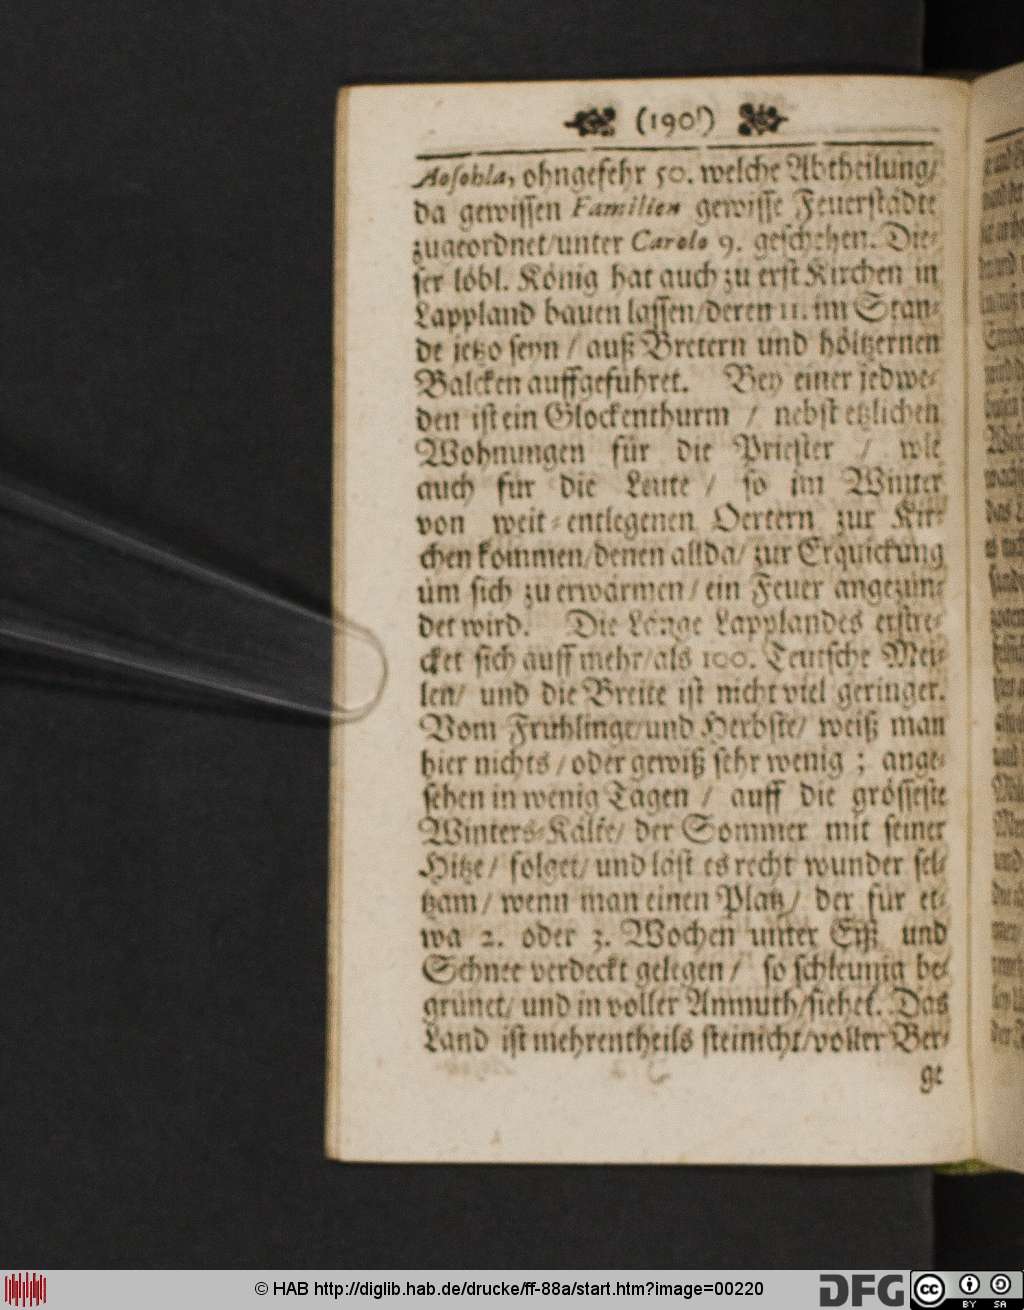 (190)
Aosohla, ohngefehr 50. welche Abtheilung/
da gewissen Familien gewisse Feuerstädte
zugeordnet/unter Carolo 9. geschehen. Die-
ser löbl. König hat auch zu erst Kirchen in
Lappland bauen lassen/deren 11. im Stan-
de jetzo seyn / auß Bretern und höltzernen
Balcken auffgeführet. Bey einer jedwe-
den ist ein Glockenthurm / nebst etzlichen
Wohnungen für die Priester / wie
auch für die Leute / so im Winter
von weit-entlegenen Oertern zur Kir-
chen kommen/denen allda/ zur Erquickung
üm sich zu erwärmen/ ein Feuer angezün-
det wird. Die Länge Lapplandes erstre-
cket sich auff mehr/als 100. Teutsche Mei-
len/ und die Breite ist nicht viel geringer.
Vom Frühlinge/und Herbste/ weiß man
hier nichts / oder gewiß sehr wenig ; ange-
sehen in wenig Tagen / auff die grösseste
Winters-Kälte/ der Sommer mit seiner
Hitze/ folget/ und läst es recht wunder sel-
tzam/ wenn man einen Platz/ der für et-
wa 2. oder 3. Wochen unter Eiß und
Schnee verdeckt gelegen/ so schleunig be-
grünet/ und in voller Anmuth/siehet. Das
Land ist mehrentheils steinicht/voller Ber-
ge
© HAB http://diglib.hab.de/drucke/ff-88a/start.htm?image=00220
DFG
cc
BY SA